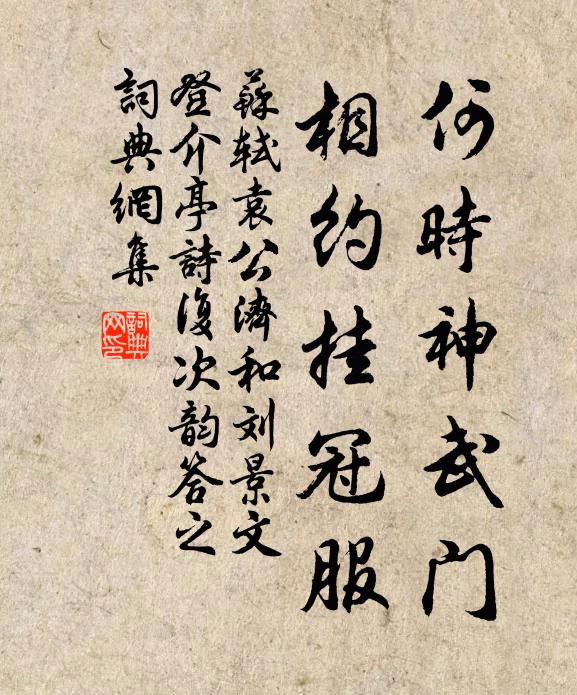 何時神武门
相約挂冠服
蘇軾袁公濟和刘景文
登介亭詩復次韵答之
詞典網集
詞典网印